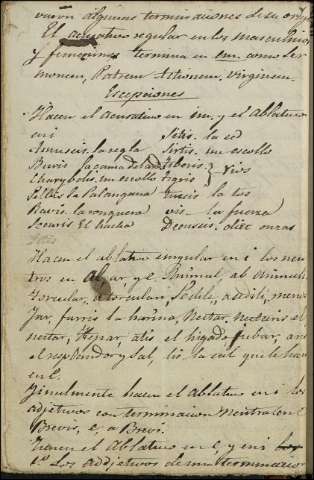 varon algunas terminaciones de su orig
El acusativo regular en los masculinos
y femeninos termina en em. como Ser
monem, Patrem Actionem, Virginem
Escepciones
Hacen el acusativo en im. y el Ablativo
en i
Amussis, la regla Sitis. la sed
Buris la cama del Sirtis. un escollo
Charybdis, un escollo Tigris Rios
Pelvis la Palangana tussis la tos
Ravis. la ronquera vis. la fuerza
Securis El hacha Decussis, diez onzas
Hacen el ablativo singular en i los neu
tros en al, ar, y e. Animal, ab animali
Torcular, a torculari, Sedile, a sedili, menos
Far, farris la harina, Nectar, nectaris el
nectar, Hepar, atis el higado jubar, aris
el resplandor y sal, lis la sal que le hacen
en E.
Finalmente hacen el Ablativo en i los
adjetivos con terminacion neutra en E
Brevis, e, a Brevi.
Hacen el Ablativo en E, y en i
1º Los Adjetivos de una terminacion